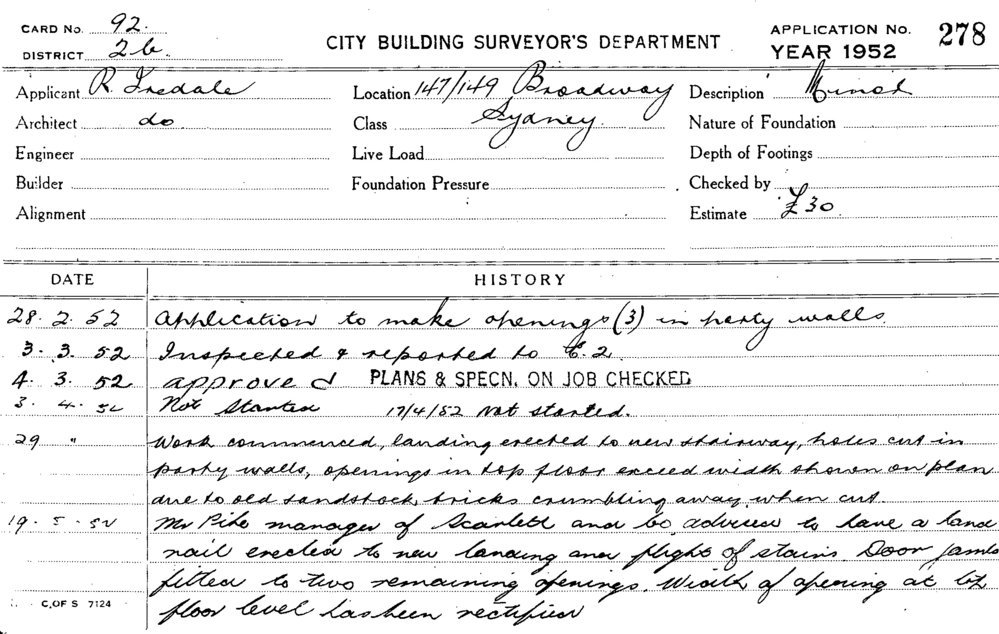 CARD No. 92.
DISTRICT 2b.
CITY BUILDING SURVEYOR'S DEPARTMENT
APPLICATION No. 278
YEAR 1952
Applicant R. Iredale
Location 147/149 Broadway
Description Minor
Architect do
Class Sydney.
Nature of Foundation
Engineer
Live Load
Depth of Footings
Builder
Foundation Pressure
Checked by
Alignment
Estimate £30
DATE HISTORY
28. 2. 52 Application to make openings (3) in party walls.
3. 3. 52 Inspected & reported to C.2.
4. 3. 52 approved PLANS & SPECN. ON JOB CHECKED
3. 4. 52 Not Started 17/4/52 Not started.
29 " Work commenced, landing erected to new stairway, holes cut in
party walls, openings in top floor exceed width shown on plan
due to old sandstock bricks crumbling away when cut.
19. 5. 52 Mr Pike manager of Scarlett and Co advised to have a hand
rail erected to new landing and flight of stairs Door jambs
fitted to two remaining openings. Width of opening at
floor level has been rectified
C. OF S 7124